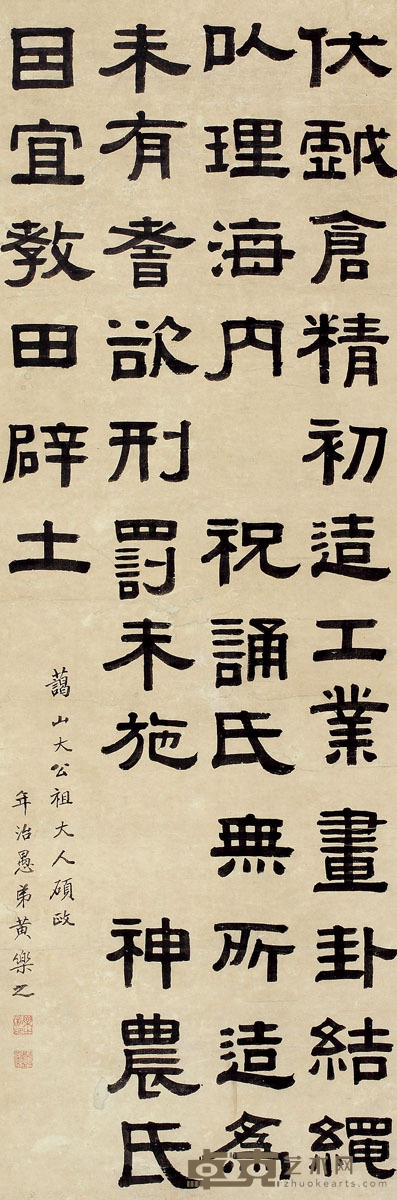 伏戲倉精初造工業畫卦結繩
以理海内 祝誦氏無所造為
未有耆欲刑罰未施 神農氏
因宜教田辟土
藹山大公祖大人碩政
年治愚弟黄樂之
卓克艺术网
zhuokearts.com